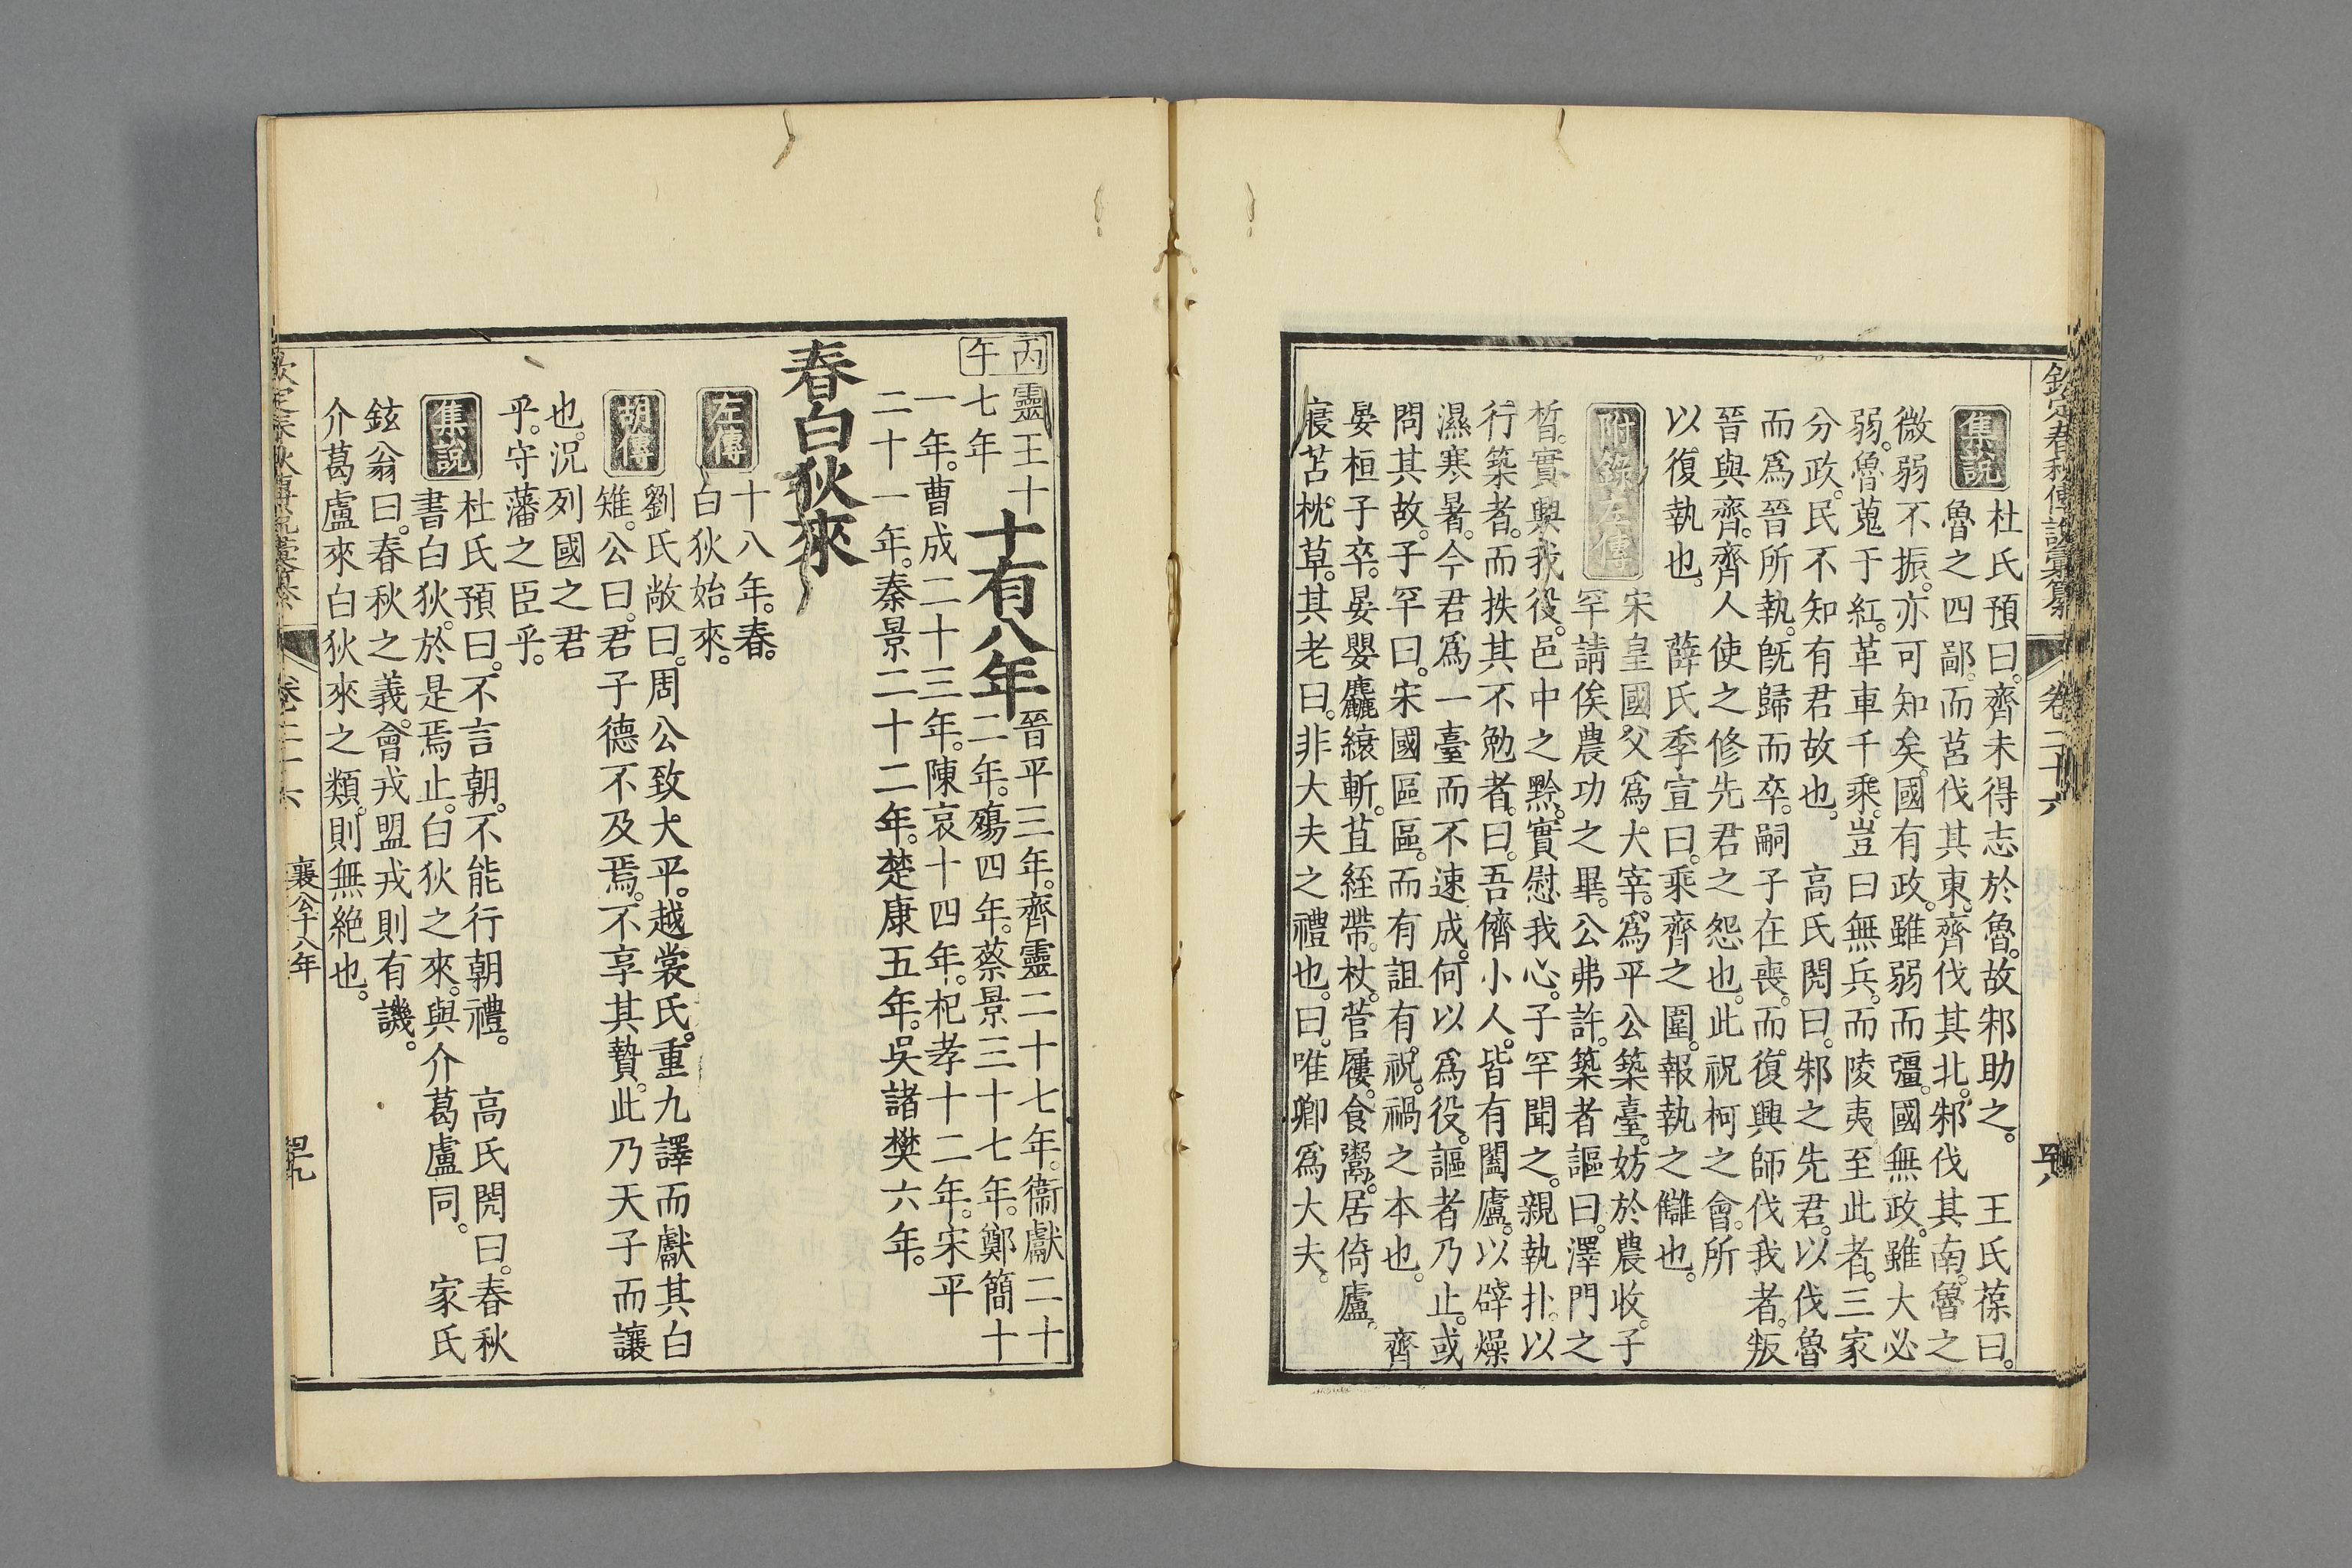 欽定春秋傳說彙纂 卷二十六
集說
杜氏預曰。齊未得志於魯。故邾助之。 王氏葆曰。
魯之四鄙。而莒伐其東。齊伐其北。邾伐其南。魯之
微弱不振。亦可知矣。國有政。雖弱而彊。國無政。雖大必
弱。魯蒐于紅。革車千乘。豈曰無兵。而陵夷至此者。三家
分政。民不知有君故也。 高氏閌曰。邾之先君。以伐魯
而爲晉所執。旣歸而卒。嗣子在喪。而復興師伐我者。叛
晉與齊。齊人使之修先君之怨也。此祝柯之會。所
以復執也。 薛氏季宣曰。乘齊之圍。報執之讎也。
附錄左傳
宋皇國父爲大宰。爲平公築臺。妨於農收。子
罕請俟農功之畢。公弗許。築者謳曰。澤門之
皙。實興我役。邑中之黔。實慰我心。子罕聞之。親執扑。以
行築者。而抶其不勉者。曰。吾儕小人。皆有闔廬。以辟燥
濕寒暑。今君爲一臺而不速成。何以爲役。謳者乃止。或
問其故。子罕曰。宋國區區。而有詛有祝。禍之本也。 齊
晏桓子卒。晏嬰麤縗斬。苴絰帶。杖。菅屨。食鬻。居倚廬。
寢苫枕草。其老曰。非大夫之禮也。曰。唯卿爲大夫。
丙午
靈王十七年
十有八年
晉平三年。齊靈二十七年。衞獻二十
二年。殤四年。蔡景三十七年。鄭簡十
一年。曹成二十三年。陳哀十四年。杞孝十二年。宋平
二十一年。秦景二十二年。楚康五年。吳諸樊六年。
春白狄來
左傳
十八年。春。
白狄始來。
胡傳
劉氏敞曰。周公致大平。越裳氏。重九譯而獻其白
雉。公曰。君子德不及焉。不享其贄。此乃天子而讓
也。況列國之君
乎。守藩之臣乎。
集說
杜氏預曰。不言朝。不能行朝禮。 高氏閌曰。春秋
書白狄。於是焉止。白狄之來。與介葛盧同。 家氏
鉉翁曰。春秋之義。會戎盟戎則有譏。
介葛盧來白狄來之類。則無絕也。
卷二十六 襄公十八年